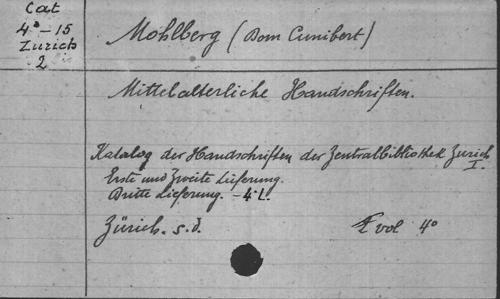 Cat
4° - 15
Zurich
2 bis
Mohlberg (Dom Cunibert)
Mittelalterliche Handschriften.
Katalog der Handschriften der Zentralbibliothek Zurich
I.
Erste und Zweite Lieferung.
Dritte Lieferung. - 4 L.
Zürich. s.d.
vol 4°